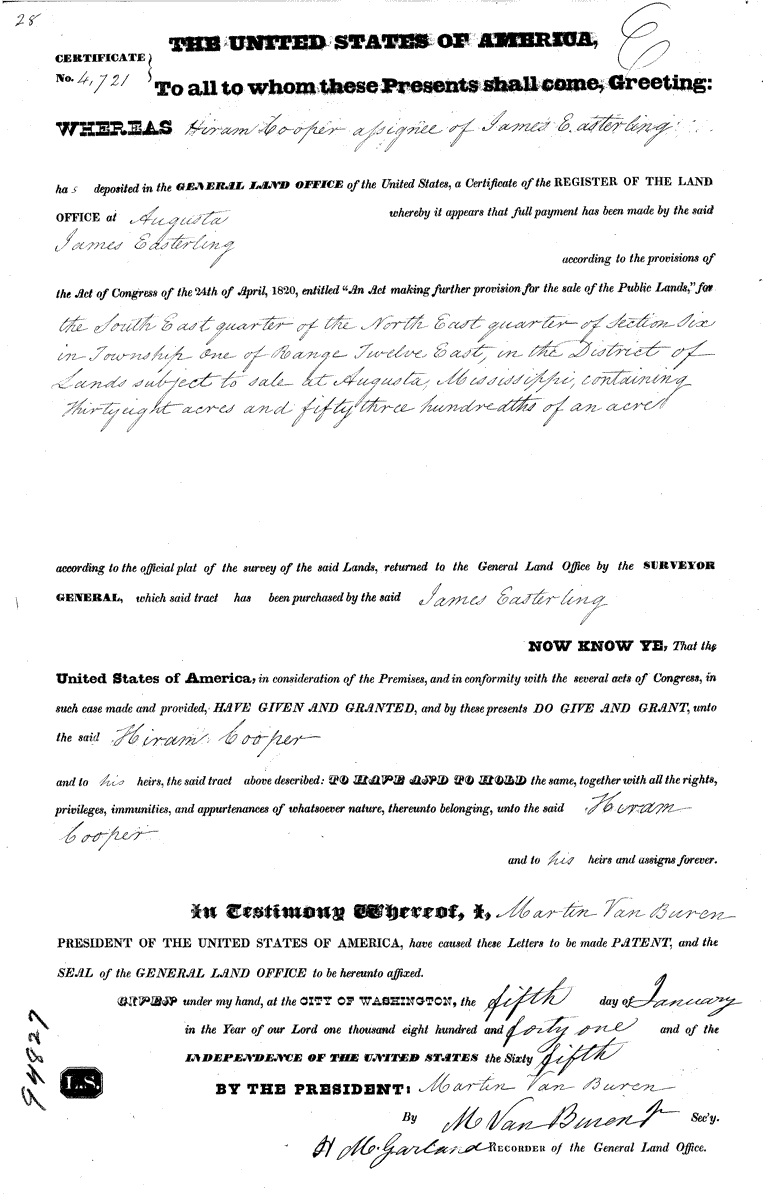 28
THE UNITED STATES OF AMERICA,
CERTIFICATE
No. 4,721
To all to whom these Presents shall come, Greeting:
WHEREAS Hiram Cooper assignee of James Easterling
has deposited in the GENERAL LAND OFFICE of the United States, a Certificate of the REGISTER OF THE LAND
OFFICE at Augusta whereby it appears that full payment has been made by the said
James Easterling
according to the provisions of
the Act of Congress of the 24th of April, 1820, entitled "An Act making further provision for the sale of the Public Lands," for
the South East quarter of the North East quarter of Section Six
in Township One of Range Twelve East, in the District of
Lands subject to sale at Augusta, Mississippi, containing
thirty eight acres and fifty three hundredths of an acre
according to the official plat of the survey of the said Lands, returned to the General Land Office by the SURVEYOR
GENERAL, which said tract has been purchased by the said James Easterling
NOW KNOW YE, That the
United States of America, in consideration of the Premises, and in conformity with the several acts of Congress, in
such case made and provided, HAVE GIVEN AND GRANTED, and by these presents DO GIVE AND GRANT, unto
the said Hiram Cooper
and to his heirs, the said tract above described: TO HAVE AND TO HOLD the same, together with all the rights,
privileges, immunities, and appurtenances of whatsoever nature, thereunto belonging, unto the said Hiram
Cooper
and to his heirs and assigns forever.
In Testimony Whereof, I, Martin Van Buren
PRESIDENT OF THE UNITED STATES OF AMERICA, have caused these Letters to be made PATENT, and the
SEAL of the GENERAL LAND OFFICE to be hereunto affixed.
GIVEN under my hand, at the CITY OF WASHINGTON, the fifth day of January
in the Year of our Lord one thousand eight hundred and forty one and of the
INDEPENDENCE OF THE UNITED STATES the Sixty fifth
94827
L.S.
BY THE PRESIDENT: Martin Van Buren
By M Van Buren Jr Sec'y.
H M. Garland RECORDER of the General Land Office.